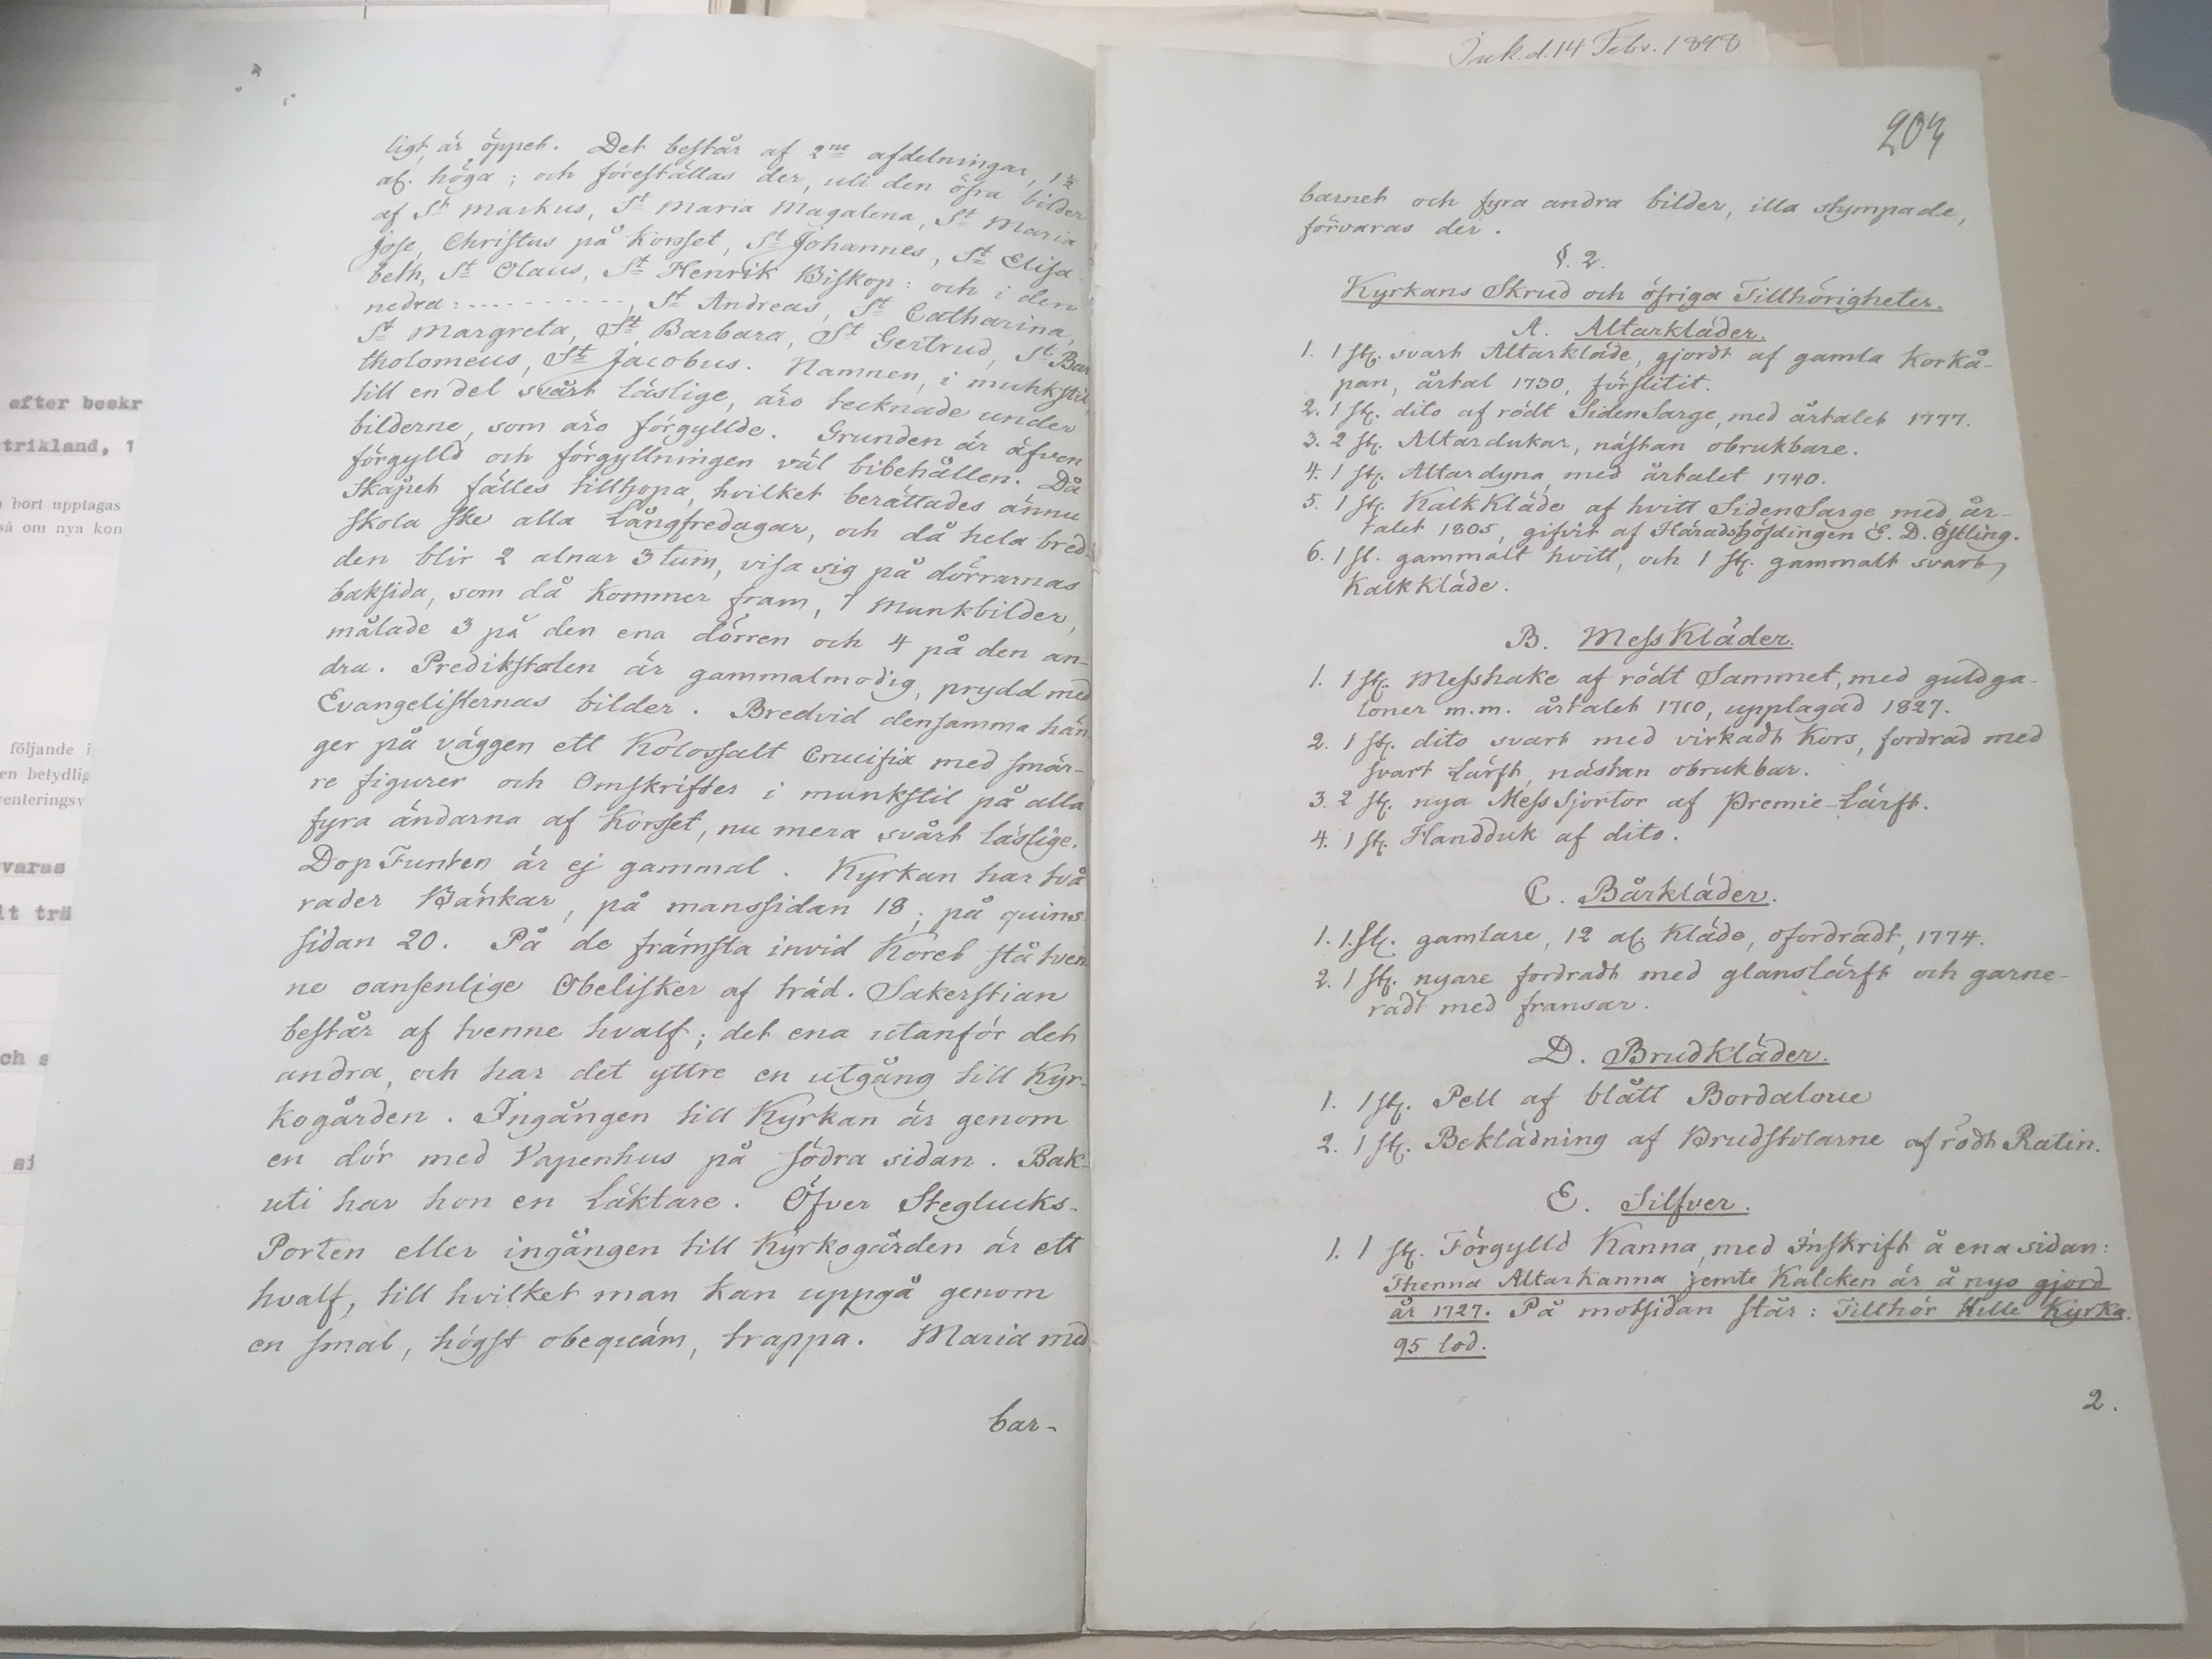 efter beskr
trikland, 1
bort upplagas
så om nya kon
följande i
en betydlig
venteringsv
varas
lt trä
ch s
si
ligt är öppet. Det består af 2ne afdelningar, 1½
al. höga; och föreställas der, uti den öfra bilder
af St Markus, St Maria Magalena, St Maria
Jose, Christus på Korsset, St Johannes, St Elisa-
beth, St Olaus, St Henrik Biskop: och i den
nedra: - - - - - - - - - -, St Andreas, St Catharina,
St Margreta, St Barbara, St Gertrud, St Bar
tholomeus, St Jacobus. Namnen, i muhkstil,
till en del svårt läslige, äro tecknade under
bilderne, som äro förgyllde. Grunden är äfven
förgylld och förgyllningen väl bibehållen. Då
Skåpet fälles tillhopa, hvilket berättades ännu
skola ske alla Långfredagar, och då hela bred-
den blir 2 alnar 3 tum, visa sig på dörrarnas
baksida, som då kommer fram, 7 Munkbilder,
målade 3 på den ena dörren och 4 på den an-
dra. Predikstolen är gammalmodig, prydd med
Evangelisternas bilder. Bredvid densamma hän
ger på väggen ett Kolossalt Crucifix med smär-
re figurer och Omskrifter i munkstil på alla
fyra ändarna af Korsset, nu mera svårt läslige.
Dop Funten är ej gammal. Kyrkan har två
rader Bänkar, på manssidan 18; på quins
sidan 20. På de främsta invid Koret stå tven
ne oansenlige Obelisker af träd. Sakerstian
består af tvenne hvalf; det ena utanför det
andra, och har det yttre en utgång till Kyr-
kogården. Ingången till Kyrkan är genom
en dör med Vapenhus på södra sidan. Bak-
uti har hon en Läktare. Öfver Steglucks-
Porten eller ingången till Kyrkogården är ett
hvalf, till hvilket man kan uppgå genom
en smal, högst obequäm, trappa. Maria med-
bar-
Ink. d. 14 Febr. 1848
203
barnet och fyra andra bilder, illa stympade,
förvaras der.
§. 2.
Kyrkans Skrud och öfriga Tillhörigheter.
A. Altarkläder.
1. 1 st. svart Altarkläde, gjordt af gamla Korkå-
pan, årtal 1730, förslitit.
2. 1 st. dito af rödt Siden Sarge, med årtalet 1777.
3. 2 st. Altardukar, nästan obrukbare.
4. 1 st. Altardyna med årtalet 1740.
5. 1 st. Kalk Kläde af hvitt Siden Sarge med år-
talet 1805, gifvit af Häradshöfdingen E. D. Östling.
6. 1 st. gammalt hvitt, och 1 st. gammalt svart,
Kalk Kläde.
B. Mess Kläder.
1. 1 st. Messhake af rödt Sammet, med guldga-
loner m.m. årtalet 1710, upplagad 1827.
2. 1 st. dito svart med virkadt Kors, fordrad med
svart Lärft, nästan obrukbar.
3. 2 st. nya Mess Sjortor af Premie-Lärft.
4. 1 st. Handduk af dito.
C. Bårkläder.
1. 1. st. gamlare, 12 al. Kläde, ofordradt, 1774.
2. 1 st. nyare fordradt med glanslärft och garne-
radt med fransar.
D. Brudkläder.
1. 1 st. Pell af blått Bordaloue
2. 1 st. Beklädning af Brudstolarne af rödt Ratin.
E. Silfver.
1. 1 st. Förgylld Kanna, med Inskrift å ena sidan:
Thenna Altar Kanna jemte Kalcken är å nyo gjord
år 1727. På motsidan står: Tillhör Hille Kyrka.
95 lod.
2.